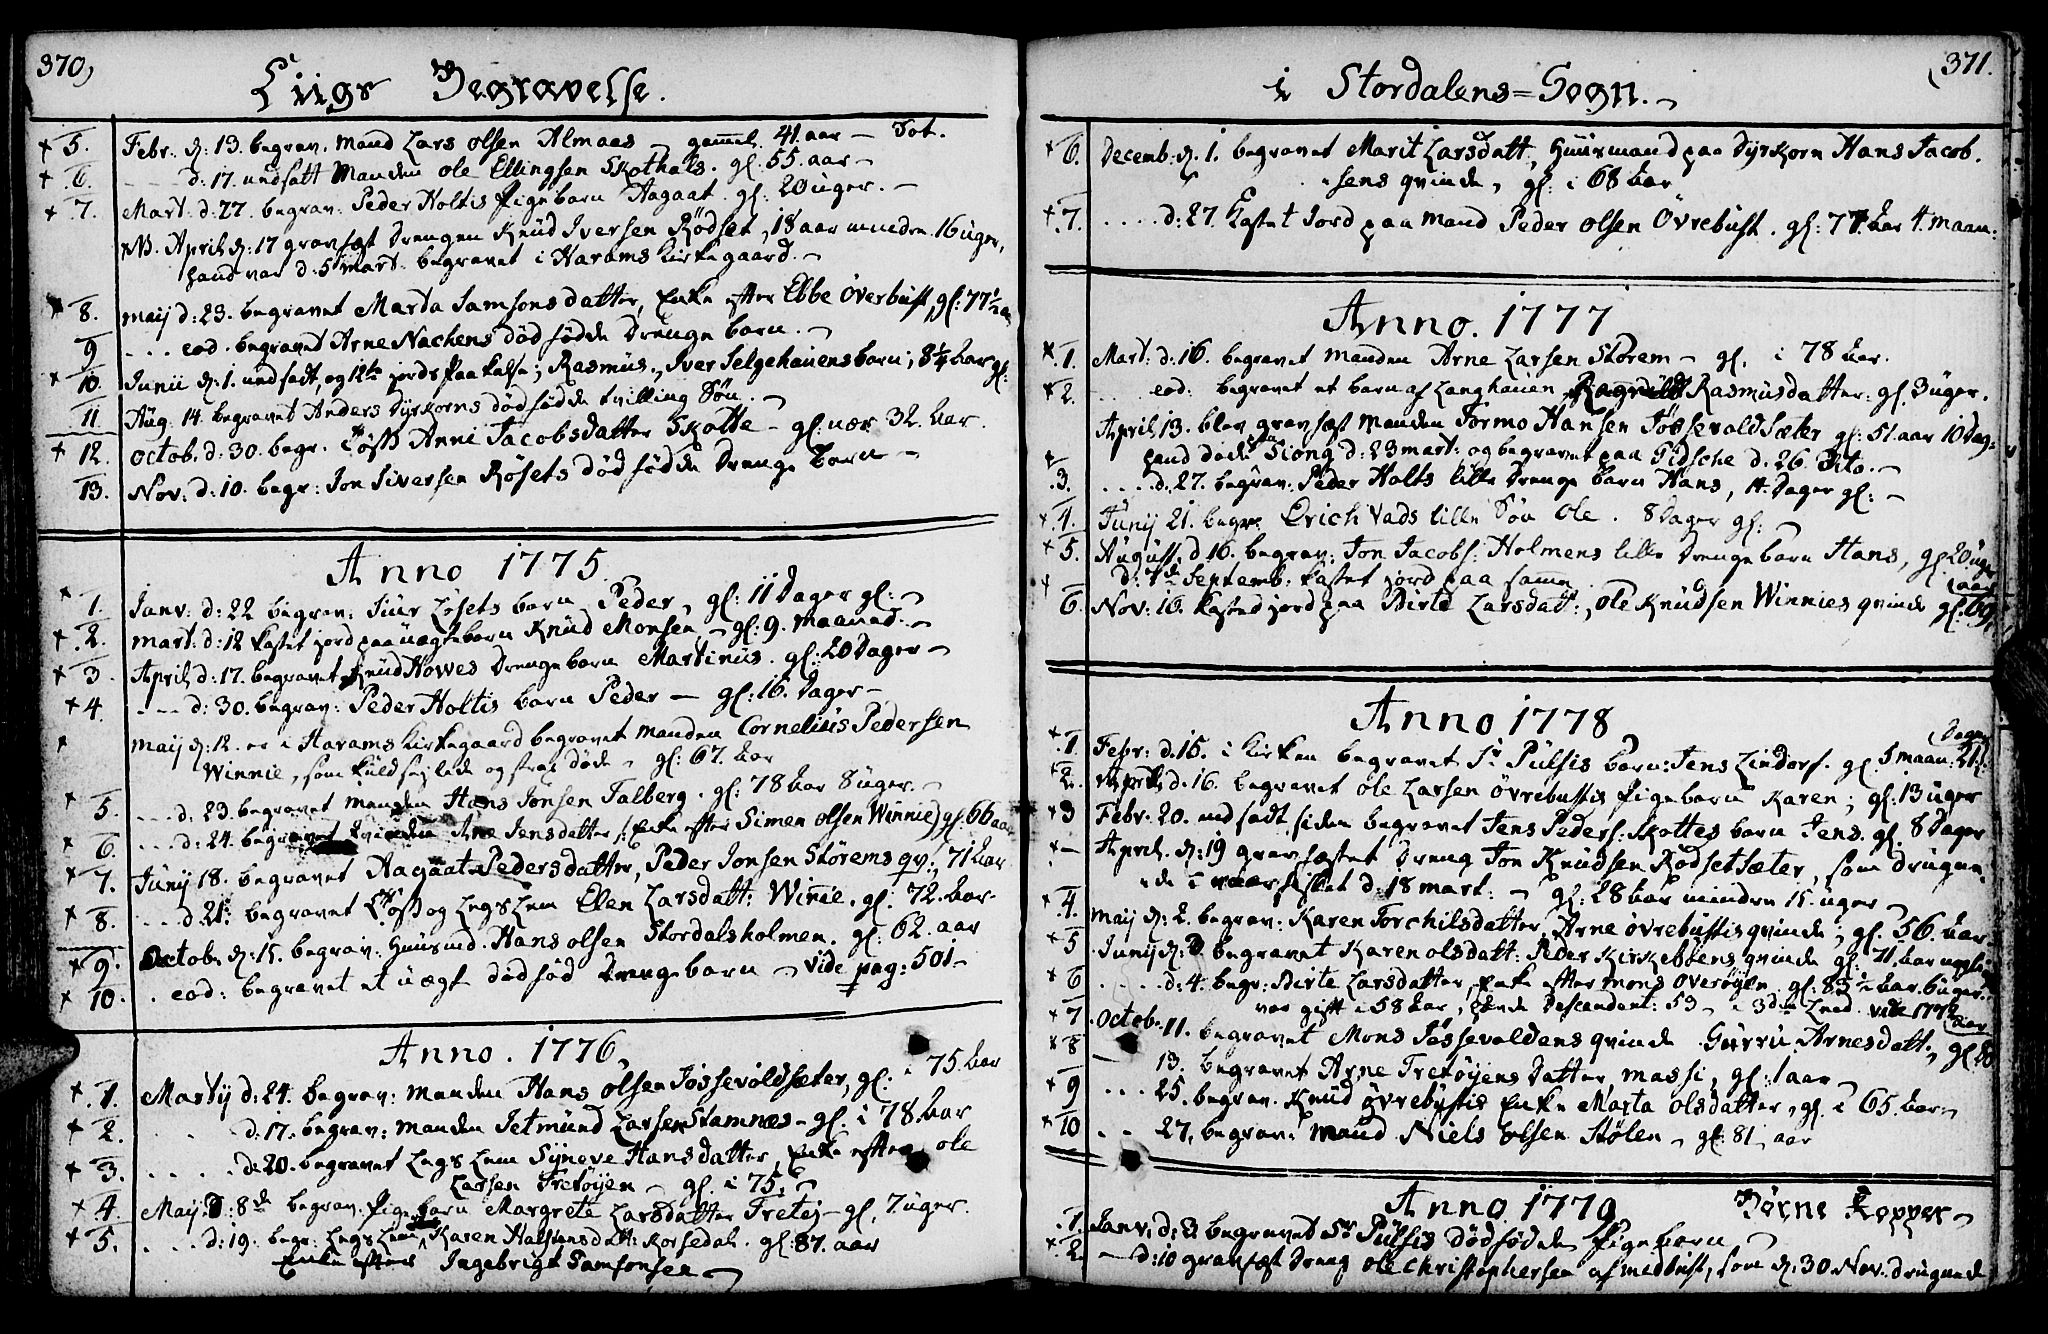 370)
Liigs Begravelse.
5. Febr. d: 13. begrav. mand Lars olsen Almaas gamel 41 aar — Tot.
6. d: 17. undsatt Manden Ole Ellingsen Skothals. gl: 55. aar —
7. Mart: d: 27. begrav: Peder Holtis Pigebarn Aagaat. gl: 20 uger. —
NB. April d: 17 gravfæst Drengen Knud Iversen Rödset, 18 aar mindre 16 uger,
hand var d: 5 mart. begravet i Harams Kirkegaard. —
8. maij d: 23. begravet Marta Samsonsdatter, Enke efter Ebbe Överbust, gl: 77½ aar
9 ... eod. begravet Arne Nackens dödfödde Drengebarn. —
10. Junii d: 1. undsadt, og 12te jords Paakastelse; Rasmus, Iver Selgehauens barn; 8¼ aar gl:
11 Aug. 14 begravet Anders Dyrkorns dödfödde tvilling Sön. —
12. Octob. d: 30. begr. Anne Jacobsdatter Skotte — gl. nær 32. aar.
13. Nov: d: 10. begr: Jon Siversen Rösets dödfödde Drenge Barn —
Anno 1775
1. Janv: d: 22 begrav: Iver Löset's barn Peder, gl: 11 Dager gl: —
2. mart: d: 12 kastet jord paa uægtebarn Knud Monsen, — gl: 9. maaned. —
3. April d: 17. begravet Knud Howes Drengebarn Martinus. gl: 20 Dager —
4. — d: 30. begrav: Peder Holtis barn Peder — gl: 16. Dager —
maij d: 12. er i Harams Kirkegaard begravet manden Cornelius Pedersen
Winnie, som kuldseglede og strax döde, gl: 67. aar
5. ... d: 23. begravet manden Hans Jonsen Talberg. gl: 78 aar 8 uger. —
6. ... d: 24. begravet Kvinden Ane Jensdatter (: Enke efter Simen olsen Winnie) gl: 66 aar
7. Junij 18. begravet Aagaat Pedersdatter, Peder Jonsen Störems qv:, 71 aar
8. ... d: 21. begravet Löst og Legs Lem Elen Larsdatt: Winnie. gl: 72. aar.
9. Octob. d: 15. begrav: Huusmd. Hans olsen Stordalsholmen. gl: 62. aar
10. . eod: begravet et uægte dödföd Drengebarn — vide pag: 501 —
Anno. 1776,
1. Martij d: 24. begrav: manden Hans Olsen Jössevoldsæter, gl: i 75. aar
2. d: 17. begrav: manden Jetmund Larsen Stamnes — gl. i 78 aar
3. .... d: 20. begravet Legs Lem Synove Hansdatter, Enke efter ole
Larsen Tretöyen — gl. i 75. —
4. Maij d: 8de begrav: Pigebarn Margrete Larsdatter Tretöj — gl. 7 uger.
5. ... d: 19. begr: Legs Lem Karen Halstensdatt: Korsedal. gl: 87. aar
Enke efter Ingebrigt Samsonsen —
i Stordalens = Sogn. —
(371.
6. Decemb: d. 1. begravet Marit Larsdatt, Huusmand paa Dyrkorn Hans Jacob.
sens qvinde, gl: i 68 aar
7. .... d: 27. kastet Jord paa mand Peder olsen Övrebust. gl: 77 aar 4. maan:
Anno. 1777
1. Mart: d: 16. begravet manden Arne Larsen Störem — gl. i 78 aar.
2. eod: begravet et barn af Langhauen Rasmusdatter: gl. 3 uger.
April 13. blev gravfæst manden Tormo Hansen Jössevoldsæter gl: 51. aar 10 Dag:
hand döde i Siong d: 23 mart: og begravet paa Gidsche d. 26. dito. —
3. .... d. 27. begrav: Peder Holts lille Drenge barn Hans, 14 Dager gl: —
4. Junij 21. begr: Erich Vads lille Sön Ole. 8 Dager gl: —
5. August. d 16. begrav: Jon Jacobs: Holmens lille Drenge barn Hans, gl 20 uger
d: 7de Septemb: kastet jord paa samme (aar
6. Nov: 16. kasted jord paa Birte Larsdatt:, ole Knudsen Winnies qvinde gl: 69,
Anno 1778
(Dager
1 Febr: d. 15. i Kirken begravet Sr Pulsis barn: Jens Lindorf. gl. 5 maan: 21,
2. April, d. 16. begravet ole Larsen Övrebustis Pigebarn Karen; gl. 13 uger
3 Febr. 20. nedsadt siden begravet Jens Peders: Skottes barn Jens. gl. 8 Dager
— April. d: 19 gravfæstet Dreng Jon Knudsen Rödsetsæter, som drugne-
de i d. 18 mart: — gl: 28 aar mindre 15. uger —
4. maij d: 2. begrav: Karen Torchilsdatter, Arne Övrebustis qvinde; gl. 56. aar.
5 Junij d: begravet Karen olsdatt: Peder Kirkeböens qvinde gl: 71. aar
6 .... d: 4. begr: Birte Larsdatter, Enke efter mons Overöyen gl: 83½ aar. 6 uger.
var gift i 58 aar, hende Descendent: 53 — i 3die Leed. vide 1772 (aar
7 Octob. 11. begravet Mons Jössevoldens qvinde Gurru Arnesdatt., gl. 80
8 — 13. begravet Arne Tretöyens Datter, massi, gl: 1 aar —
9 ... 25. begrav. Knud Övrebustis Enke Marta olsdatter, gl. i 65. aar —
10 .. 27. begrav: mand Niels Olsen Stölen — gl: 81 aar
Anno 1779 Börne Kopper —
1. Janv. d: 3. begravet Sr Pulsis dödfödde Pigebarn —
2. — d: 10 gravfæst Dreng ole Christophersen af medbust, som d: 30 Nov. drugnede